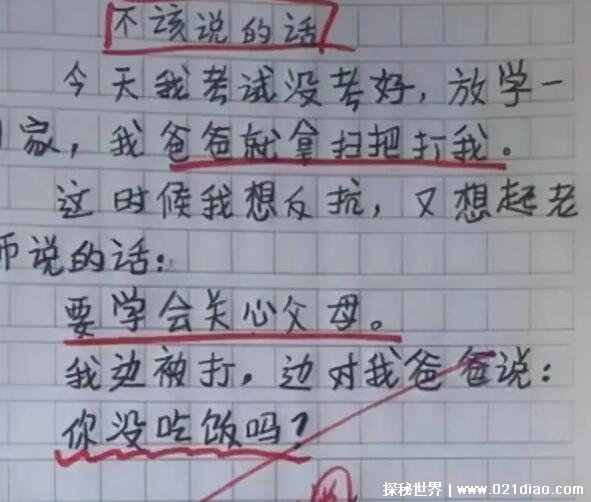 不该说的话
今天我考试没考好，放学一
家，我爸爸就拿扫把打我。
这时候我想反抗，又想起老
师说的话：
要学会关心父母。
我边被打，边对我爸爸说：
你没吃饭吗？
探秘世界｜www.021diao.com